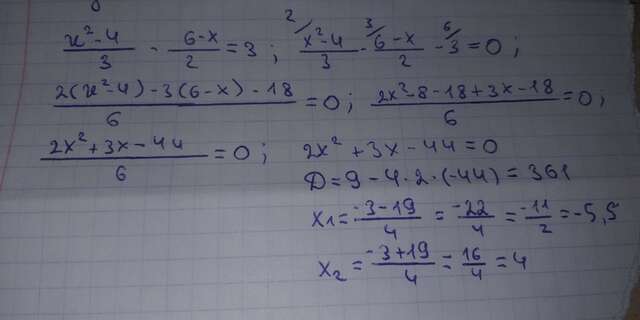 (x²-4)/3 - (6-x)/2 = 3 ; ²/(x²-4)/3 - ³/(6-x)/2 - ⁶/3 = 0 ;
(2(x²-4)-3(6-x)-18)/6 = 0 ; (2x²-8-18+3x-18)/6 = 0 ;
(2x²+3x-44)/6 = 0 ; 2x²+3x-44=0
D=9-4·2·(-44)=361
x1 = (-3-19)/4 = -22/4 = -11/2 = -5,5
x2 = (-3+19)/4 = 16/4 = 4